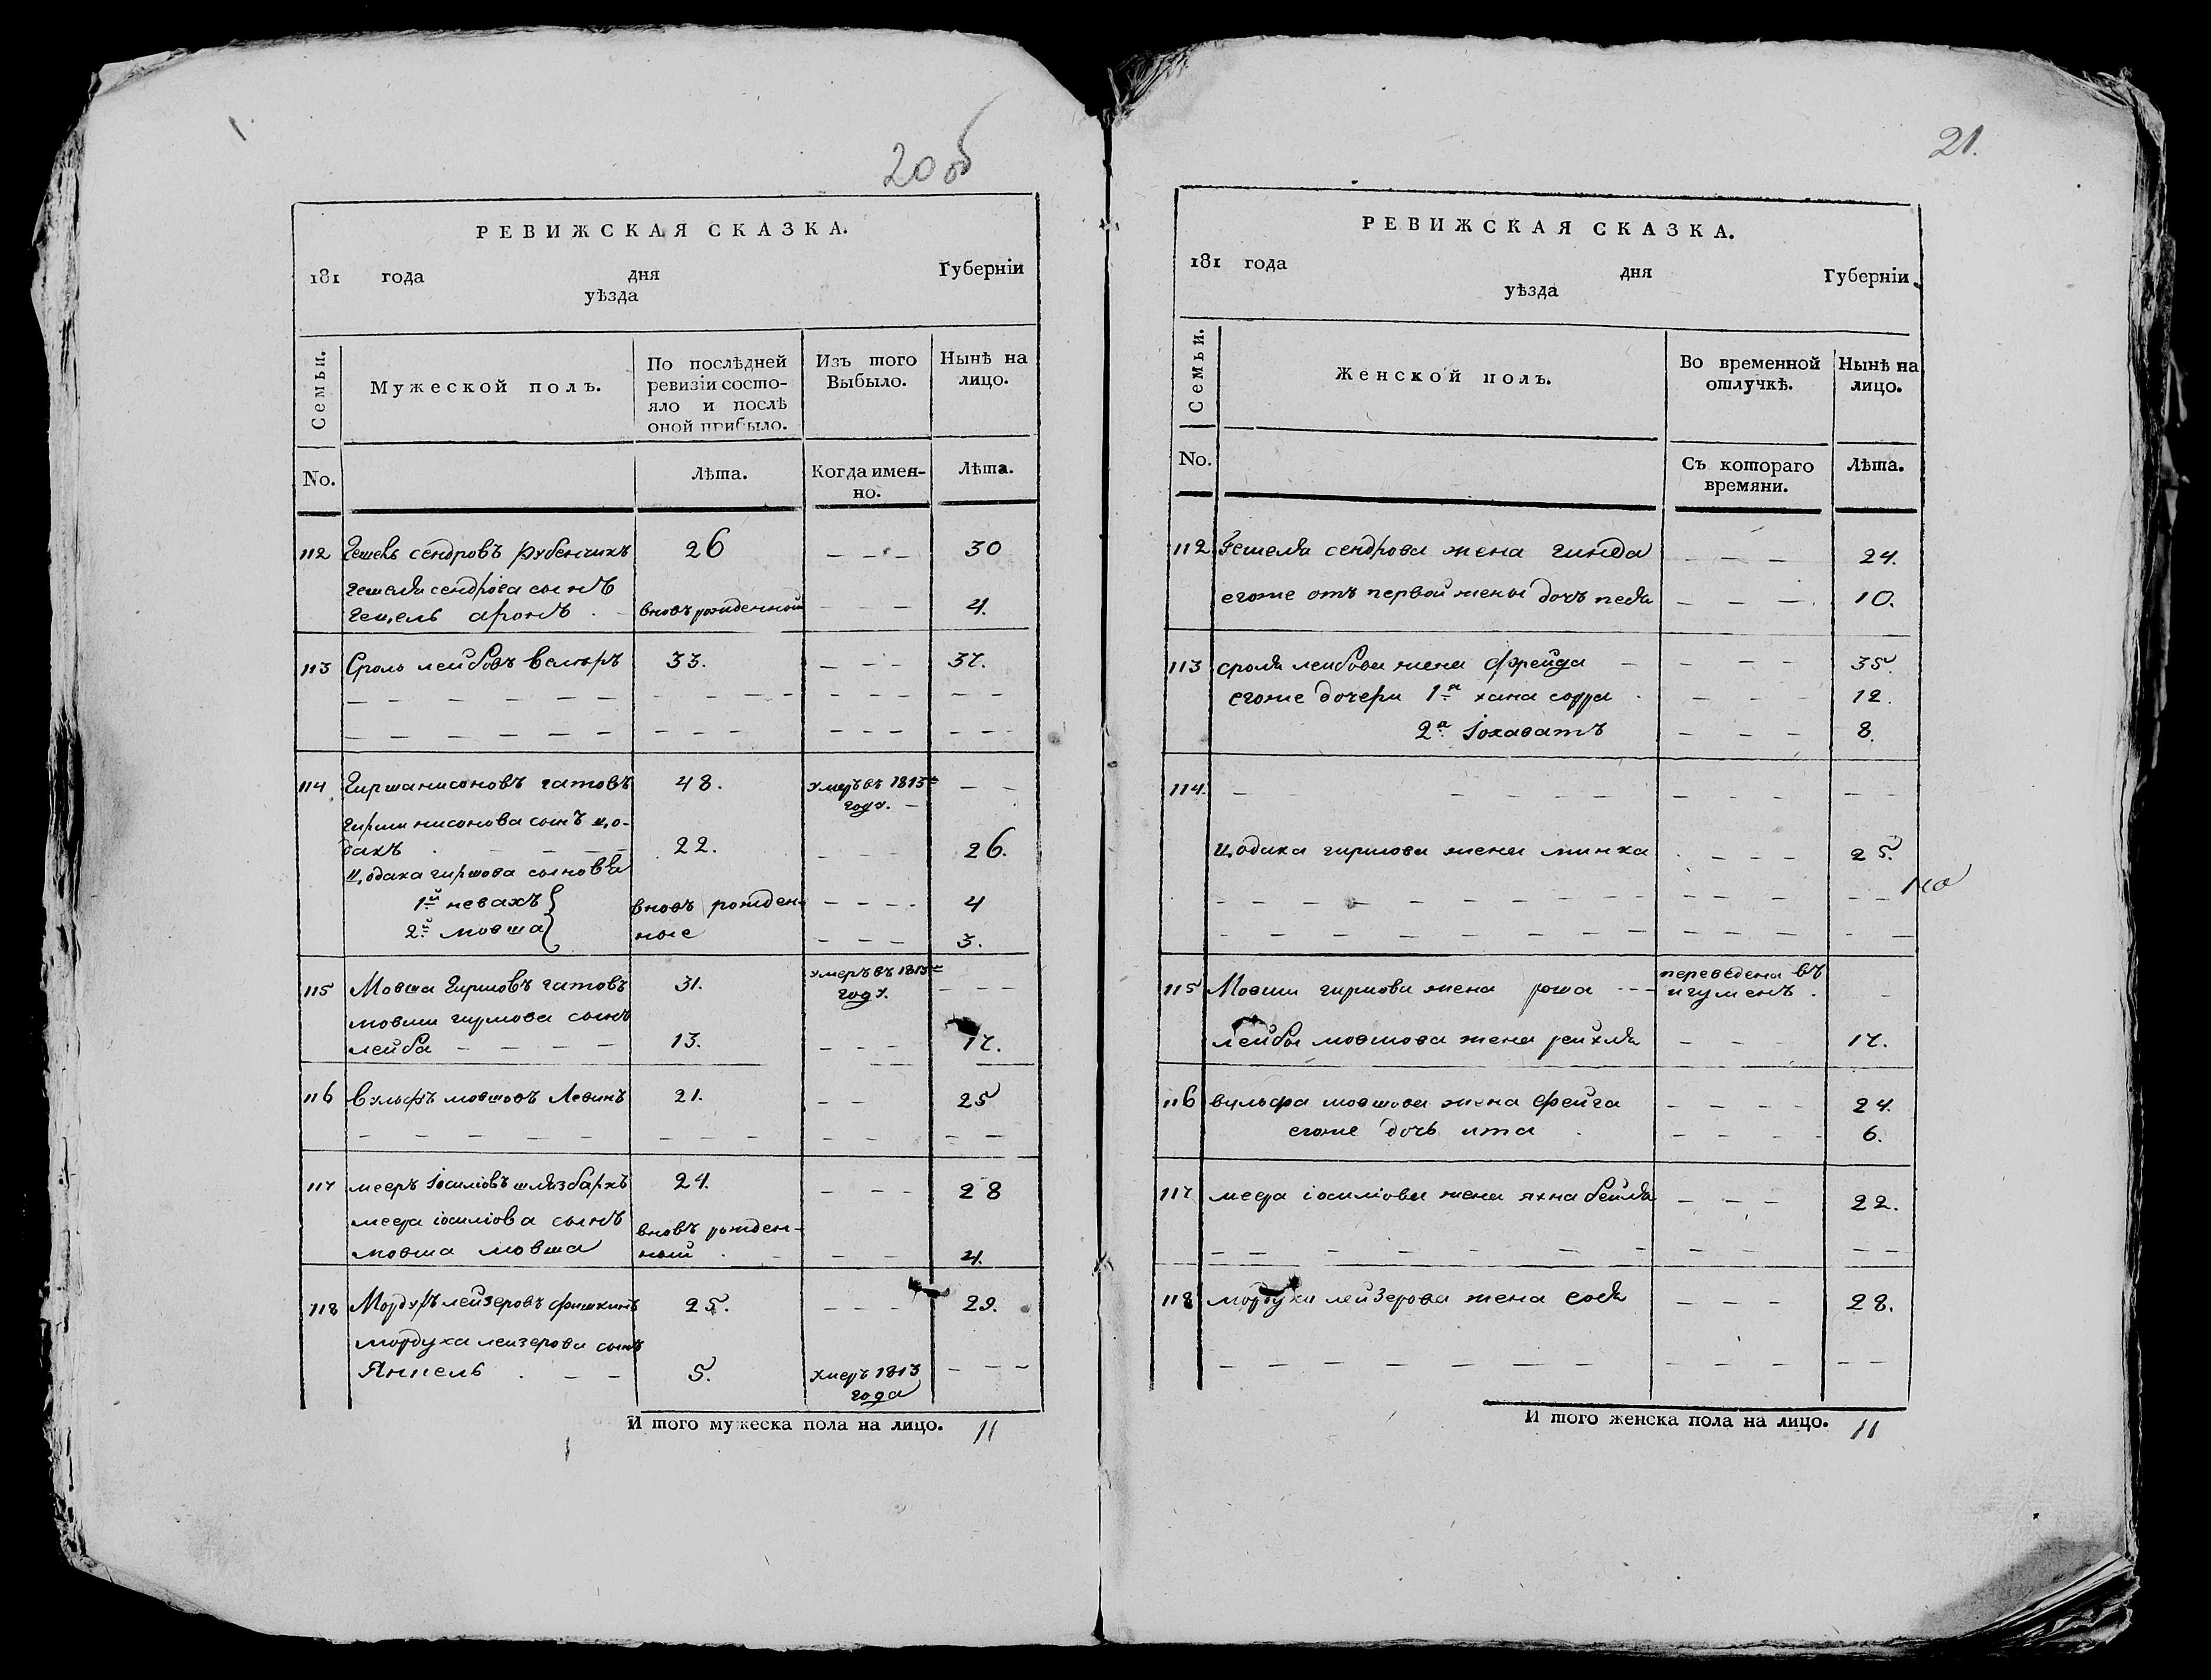 20 об
РЕВИЖСКАЯ СКАЗКА.
181 года дня Губерніи
уѣзда
Семьи.
Мужеской полъ.
По послѣдней ревизіи состо-
яло и послѣ оной прибыло.
Изъ того Выбыло.
Нынѣ на лицо.
No.
Лѣта.
Когда имен-
но.
Лѣта.
112 Гешель сендровъ рубенчикъ 26 — — — 30
гешеля сендрова сынъ
гецель аронъ . — вновь рожденной — — — 4.
113 Сроль лейбовъ 33. — — — 37.
114 Гирша нисоновъ гатовъ 48. умеръ въ 1815м — —
году. —
гирши нисонова сынъ цо-
дахъ . — — — 22. — — — 26.
цодаха гиршова сыновья
1й невахъ вновь рожден- — — — — 4
2й мовша ные — — — 3.
115 Мовша Гиршовъ гатовъ 31. умеръ въ 1815м — — —
году.
мовши гиршова сынъ
лейба — — — — 13. — — — 17.
116 Вульфъ мовшовъ Левинъ 21. — — 25
117 мееръ іосиліовъ 24. — — — 28
меера іосиліова сынъ вновь рожден-
мовша мовша ный . — — — 4.
118 Мордухъ лейзеровъ фишкинъ 25. — — — 29.
мордуха лейзерова сынъ
Янкель . — — 5. умеръ 1813 — — —
года
И того мужеска пола на лицо. 11
21.
РЕВИЖСКАЯ СКАЗКА.
181 года дня Губерніи
уѣзда
Семьи.
Женской полъ.
Во временной отлучкѣ.
Нынѣ на лицо.
No.
Съ котораго времяни.
Лѣта.
112 Гешеля сендрова жена гинда — — — 24.
егоже отъ первой жены дочь песя — — — 10.
113 сроля лейбова жена фрейда — — — — 35.
егоже дочери 1я хана сорра . — — — 12.
2я іохаватъ — — — 8.
114. — — — — — —
цодаха гиршова жена минка . — — — 25.
115 Мовши гиршова жена роша — — — переведена въ —
игуменъ .
лейбы мовшова жена рейхля — — — 17.
116 вульфа мовшова жена фейга — — — — 24.
егоже дочь ита . — — — — 6.
117 меера іосиліова жена яхна бейля — — — 22.
118 мордуха лейзерова жена сося — — — 28.
И того женска пола на лицо. 11